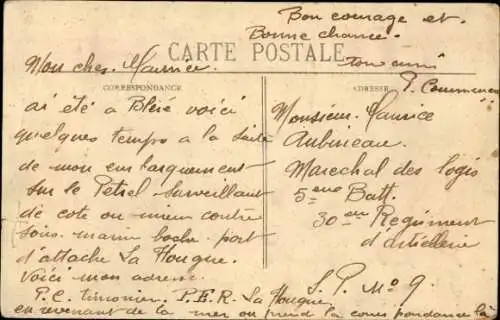 Bon courage et
Bonne chance
CARTE POSTALE
ton ami
Mon cher Maurice
P. Commun
CORRESPONDANCE
ADRESSE
ai été a Bléré voici
quelques temps a la suite
de mon embarquement
sur le Petrel surveillant
de cote ou mieux contre
sous marin boche port
d'attache La Hougue.
Voici mon adresse
P.C. timonier. P.E.R. La Hougue
en revenant de la mer on prend la correspondance la
Monsieur Maurice
Aubineau
Marechal des logis
5eme Batt.
30eme Regiment
d'artillerie
S. P. No 9.